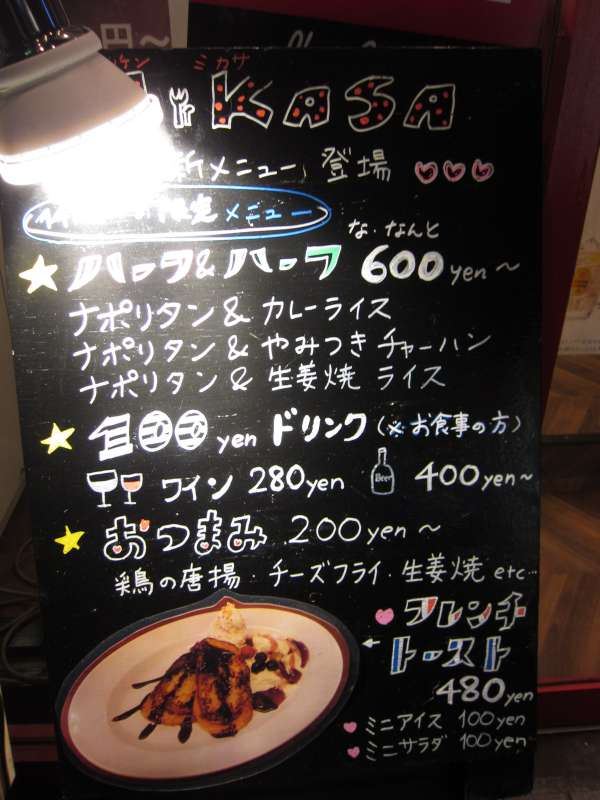 円～
ケン ミカサ
KASA
新メニュー 登場
限定メニュー
な・なんと
ハーフ&ハーフ 600yen～
ナポリタン & カレーライス
ナポリタン & やみつきチャーハン
ナポリタン & 生姜焼 ライス
100yen ドリンク (※お食事の方)
ワイン 280yen Beer 400yen～
おつまみ 200yen～
鶏の唐揚・チーズフライ・生姜焼 etc…
フレンチ
←トースト
480yen
ミニアイス 100yen
ミニサラダ 100yen